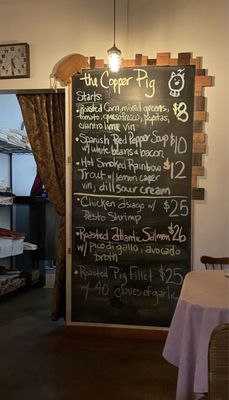 the Copper Pig
Starts:
• Roasted Corn, mixed greens, $8
tomato, queso fresco, pepitas,
cilantro lime vin
• Spanish Red Pepper Soup $10
w. white beans & bacon
• Hot Smoked Rainbow $12
Trout w/ lemon caper
vin, dill sour cream
• Chicken Asiago w/ $25
Pesto Shrimp
• Roasted Atlantic Salmon $26
w/ Pico di gallo, avocado
broth
• Roasted Pig Fillet $25
w/ 40 cloves of garlic